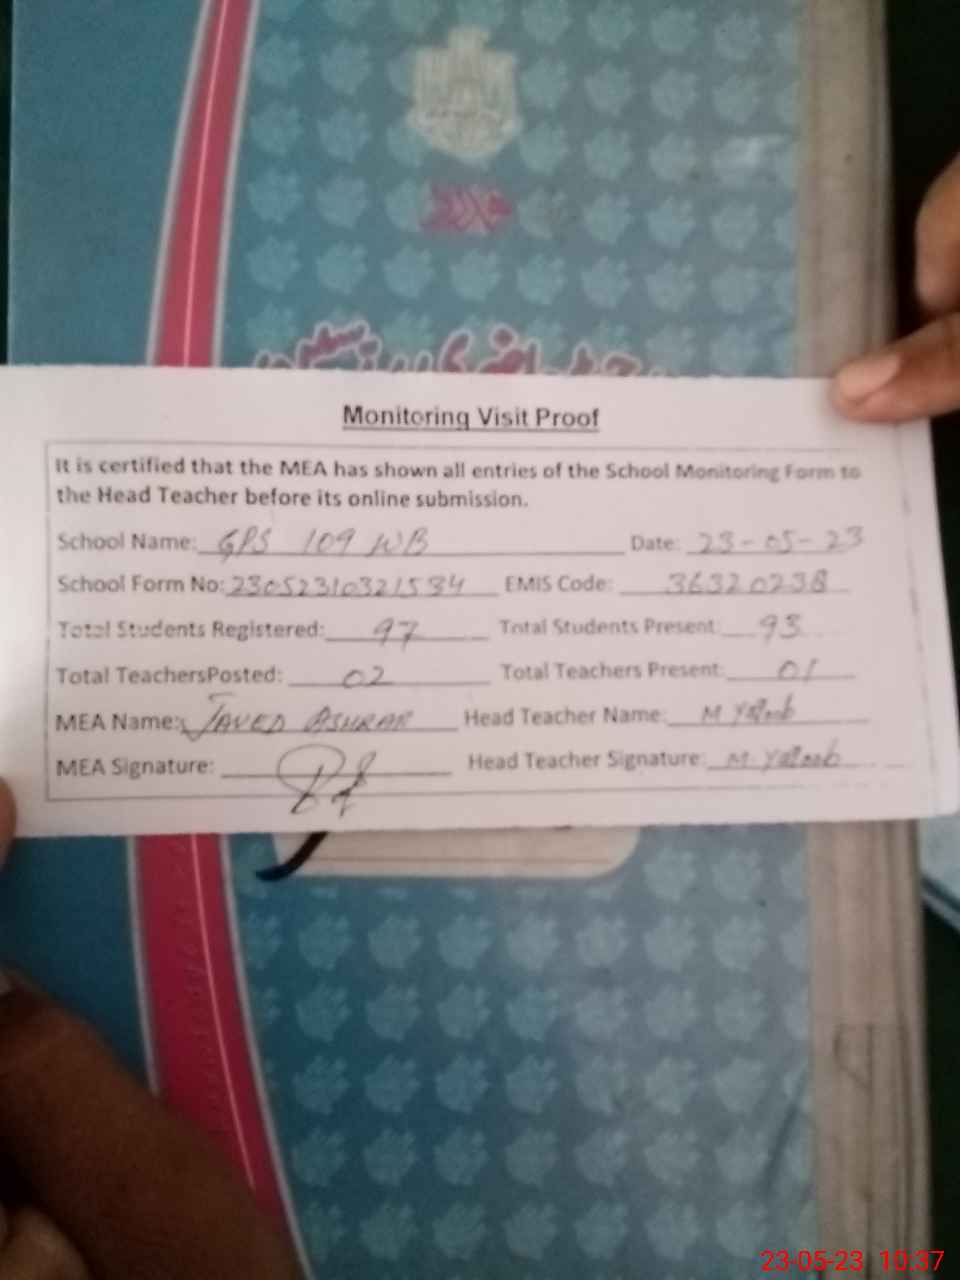 Monitoring Visit Proof
It is certified that the MEA has shown all entries of the School Monitoring Form to
the Head Teacher before its online submission.
School Name: GPS 109 WB Date: 23-05-23
School Form No: 23052310321534 EMIS Code: 36320238
Total Students Registered: 97 Total Students Present: 93
Total TeachersPosted: 02 Total Teachers Present: 01
MEA Name: JAVED Head Teacher Name: M Yaqoob
MEA Signature: Head Teacher Signature: M Yaqoob
23-05-23 10:37